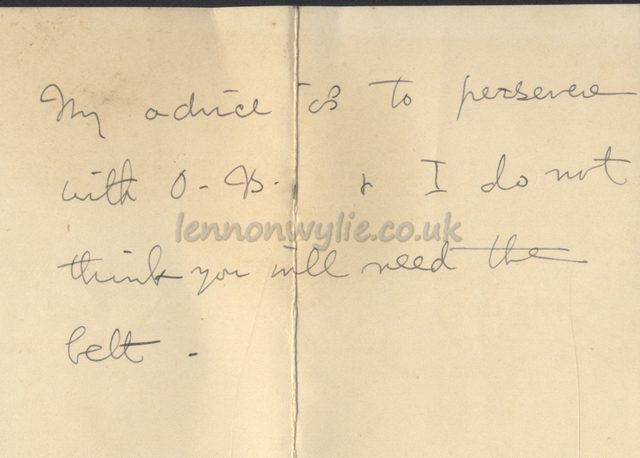 My advice is to persevere
with O-B. & I do not
lennonwylie.co.uk
think you will need the
belt.